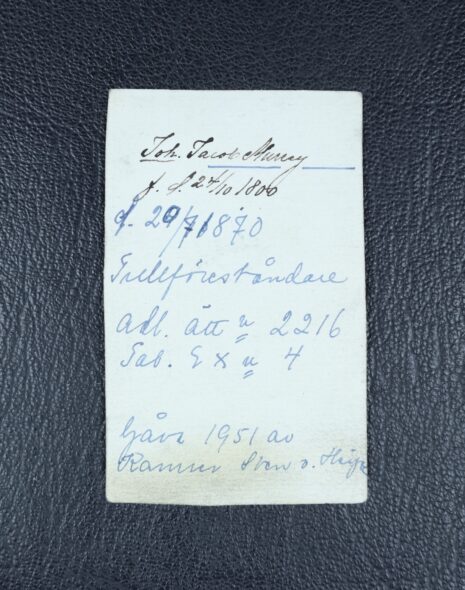 Joh. Jacob Murray
f. d. 27/10 1800
d. 29/7 1870
Tullföreståndare
adl. ätt n 2216
Tab. n 4
Gåva 1951 av
Sven v.